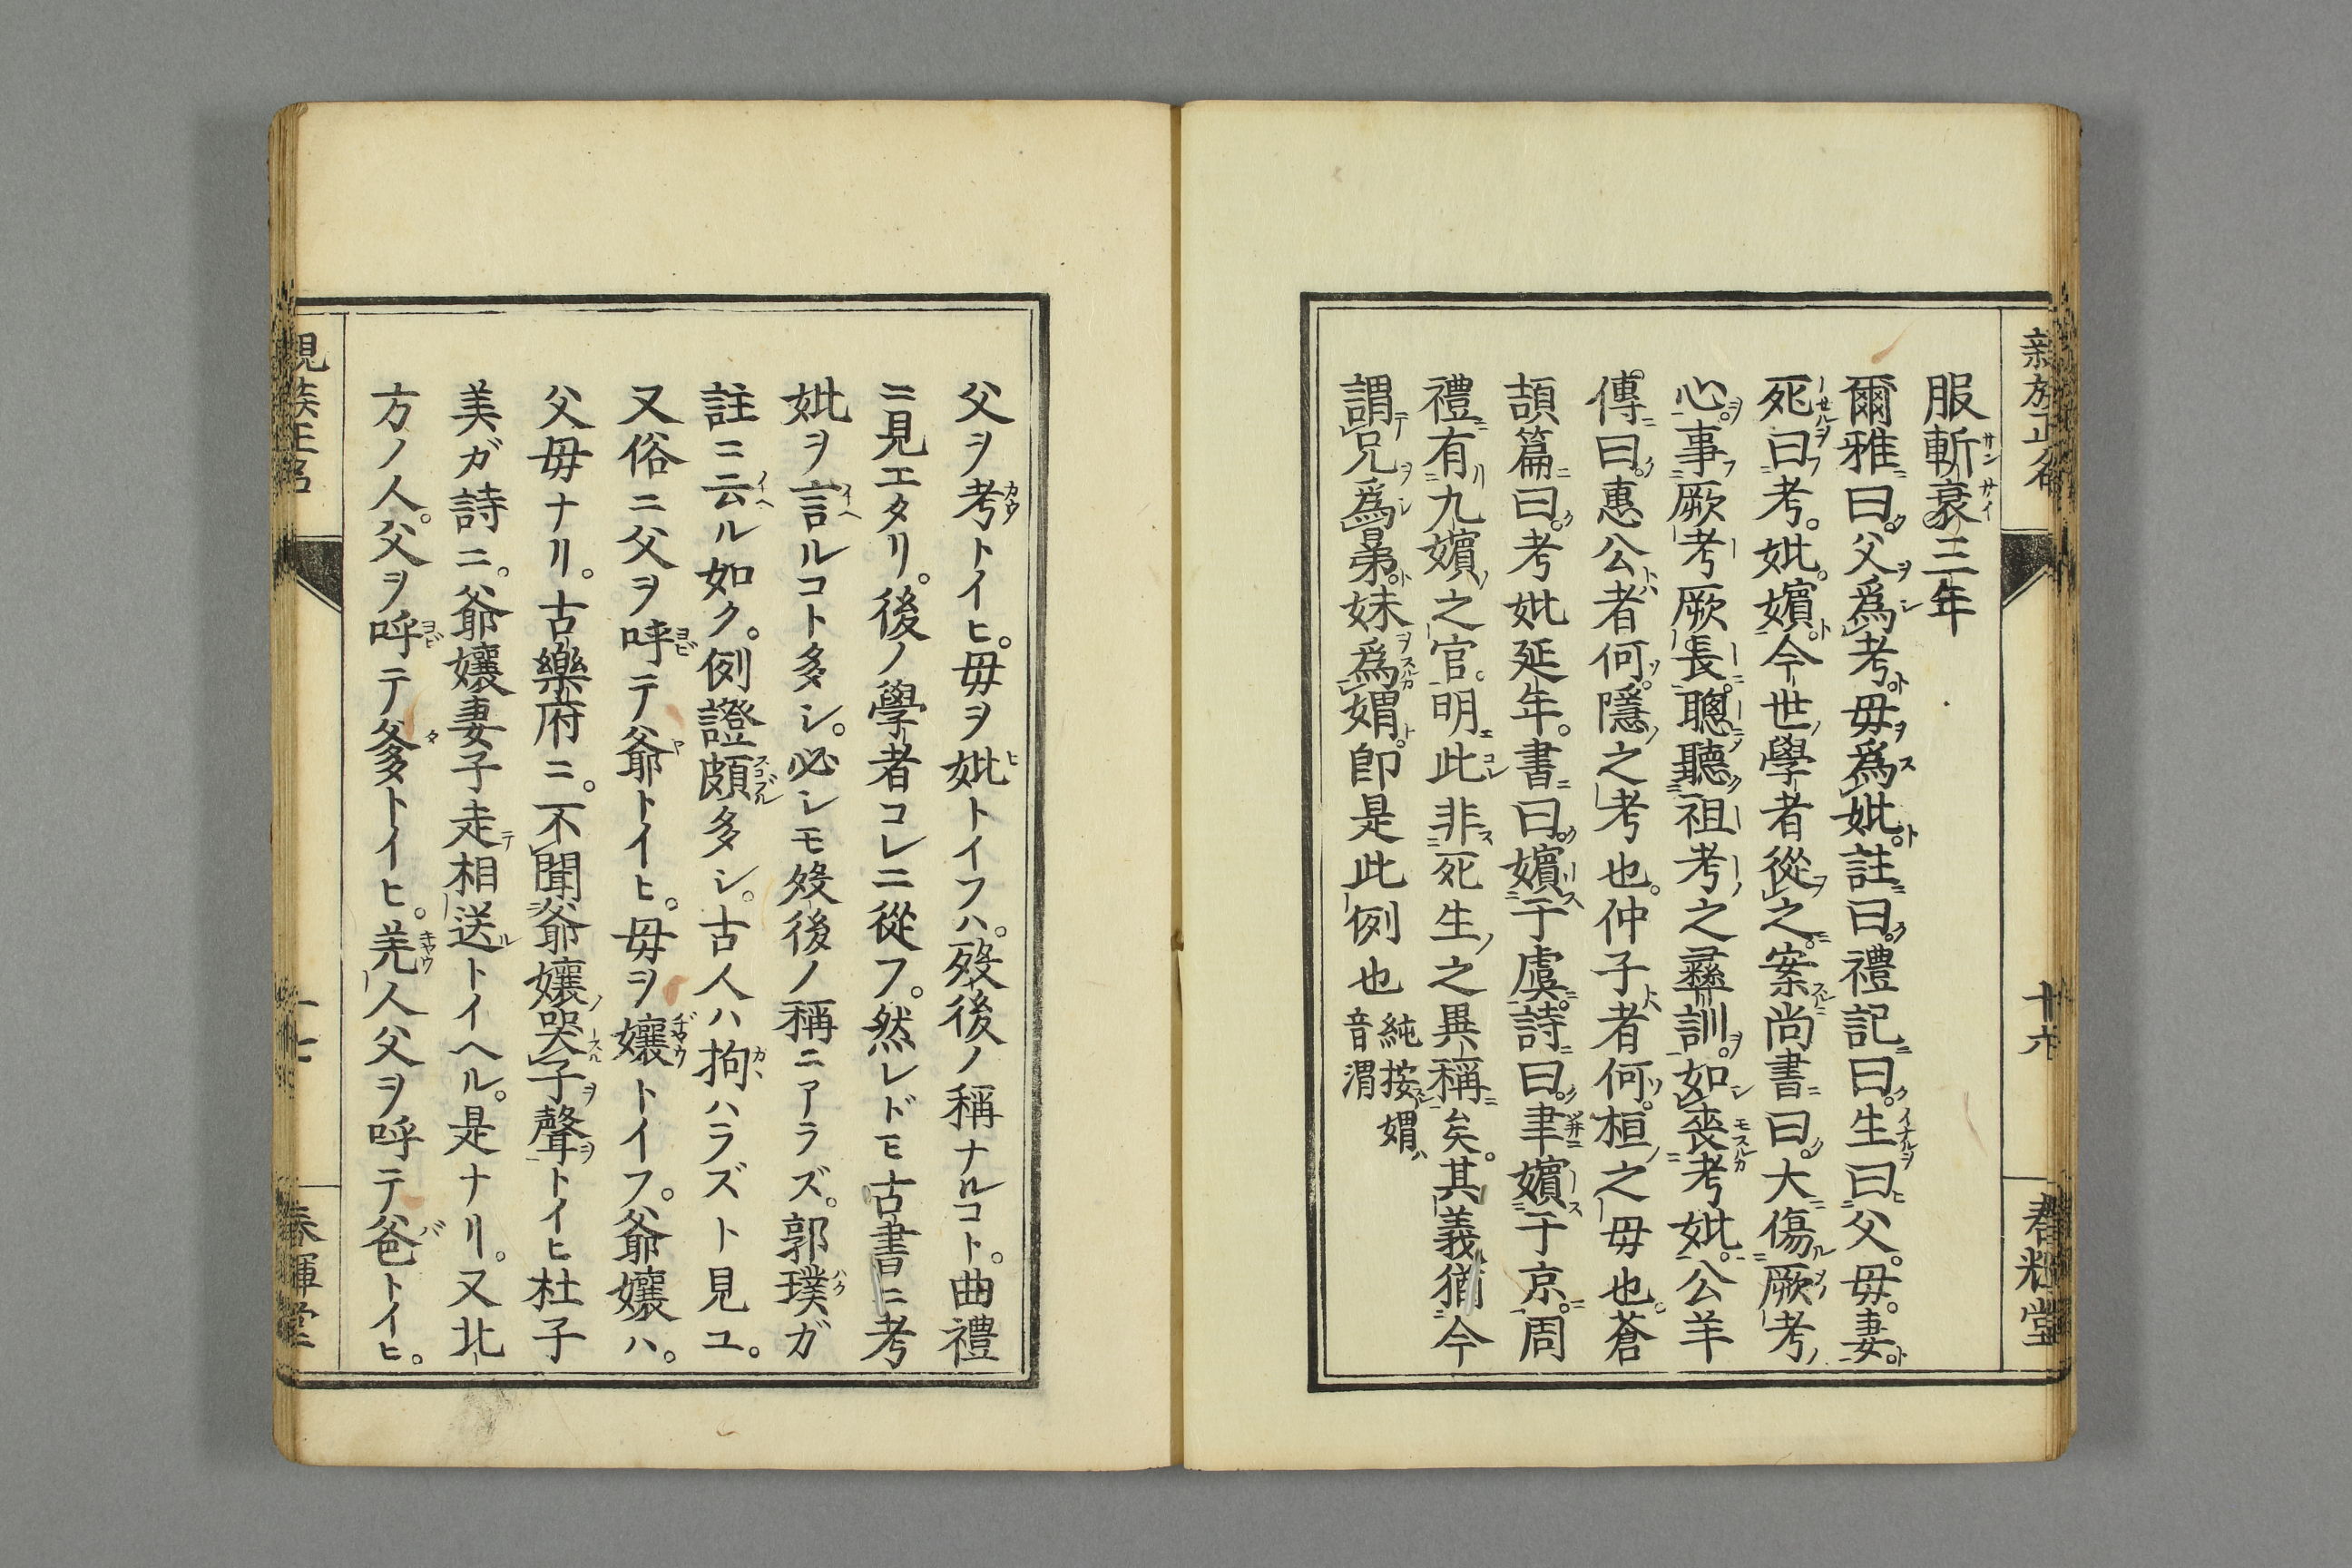 親族正名
十六
春輝堂
服斬衰三年
爾雅曰。父爲考。毋爲妣。註曰。禮記曰。生曰父。毋。妻。
死曰考。妣。嬪。今世學者從之。案尚書曰。大傷厥考
心。事厥考厥長。聰聽祖考之彛訓。如喪考妣。公羊
傳曰。惠公者何。隱之考也。仲子者何。桓之毋也。蒼
頡篇曰。考妣延年。書曰。嬪于虞。詩曰。聿嬪于京。周
禮有九嬪之官。明此非死生之異稱矣。其義猶今
謂兄爲㫷。妹爲媦。卽是此例也
純按媦
音渭
父ヲ考トイヒ。毋ヲ妣トイフハ。歿後ノ稱ナルコト。曲禮
ニ見エタリ。後ノ學者コレニ從フ。然レドモ古書ニ考
妣ヲ言ルコト多シ。必シモ歿後ノ稱ニアラズ。郭璞ガ
註ニ云ル如ク。例證頗多シ。古人ハ拘ハラズト見ユ。
又俗ニ父ヲ呼テ爺トイヒ。毋ヲ孃トイフ。爺孃ハ。
父毋ナリ。古樂府ニ。不聞爺孃哭子聲トイヒ杜子
美ガ詩ニ。爺孃妻子走相送トイヘル。是ナリ。又北
方ノ人。父ヲ呼テ爹トイヒ。羌人父ヲ呼テ爸トイヒ。
親族正名
十七
春輝堂